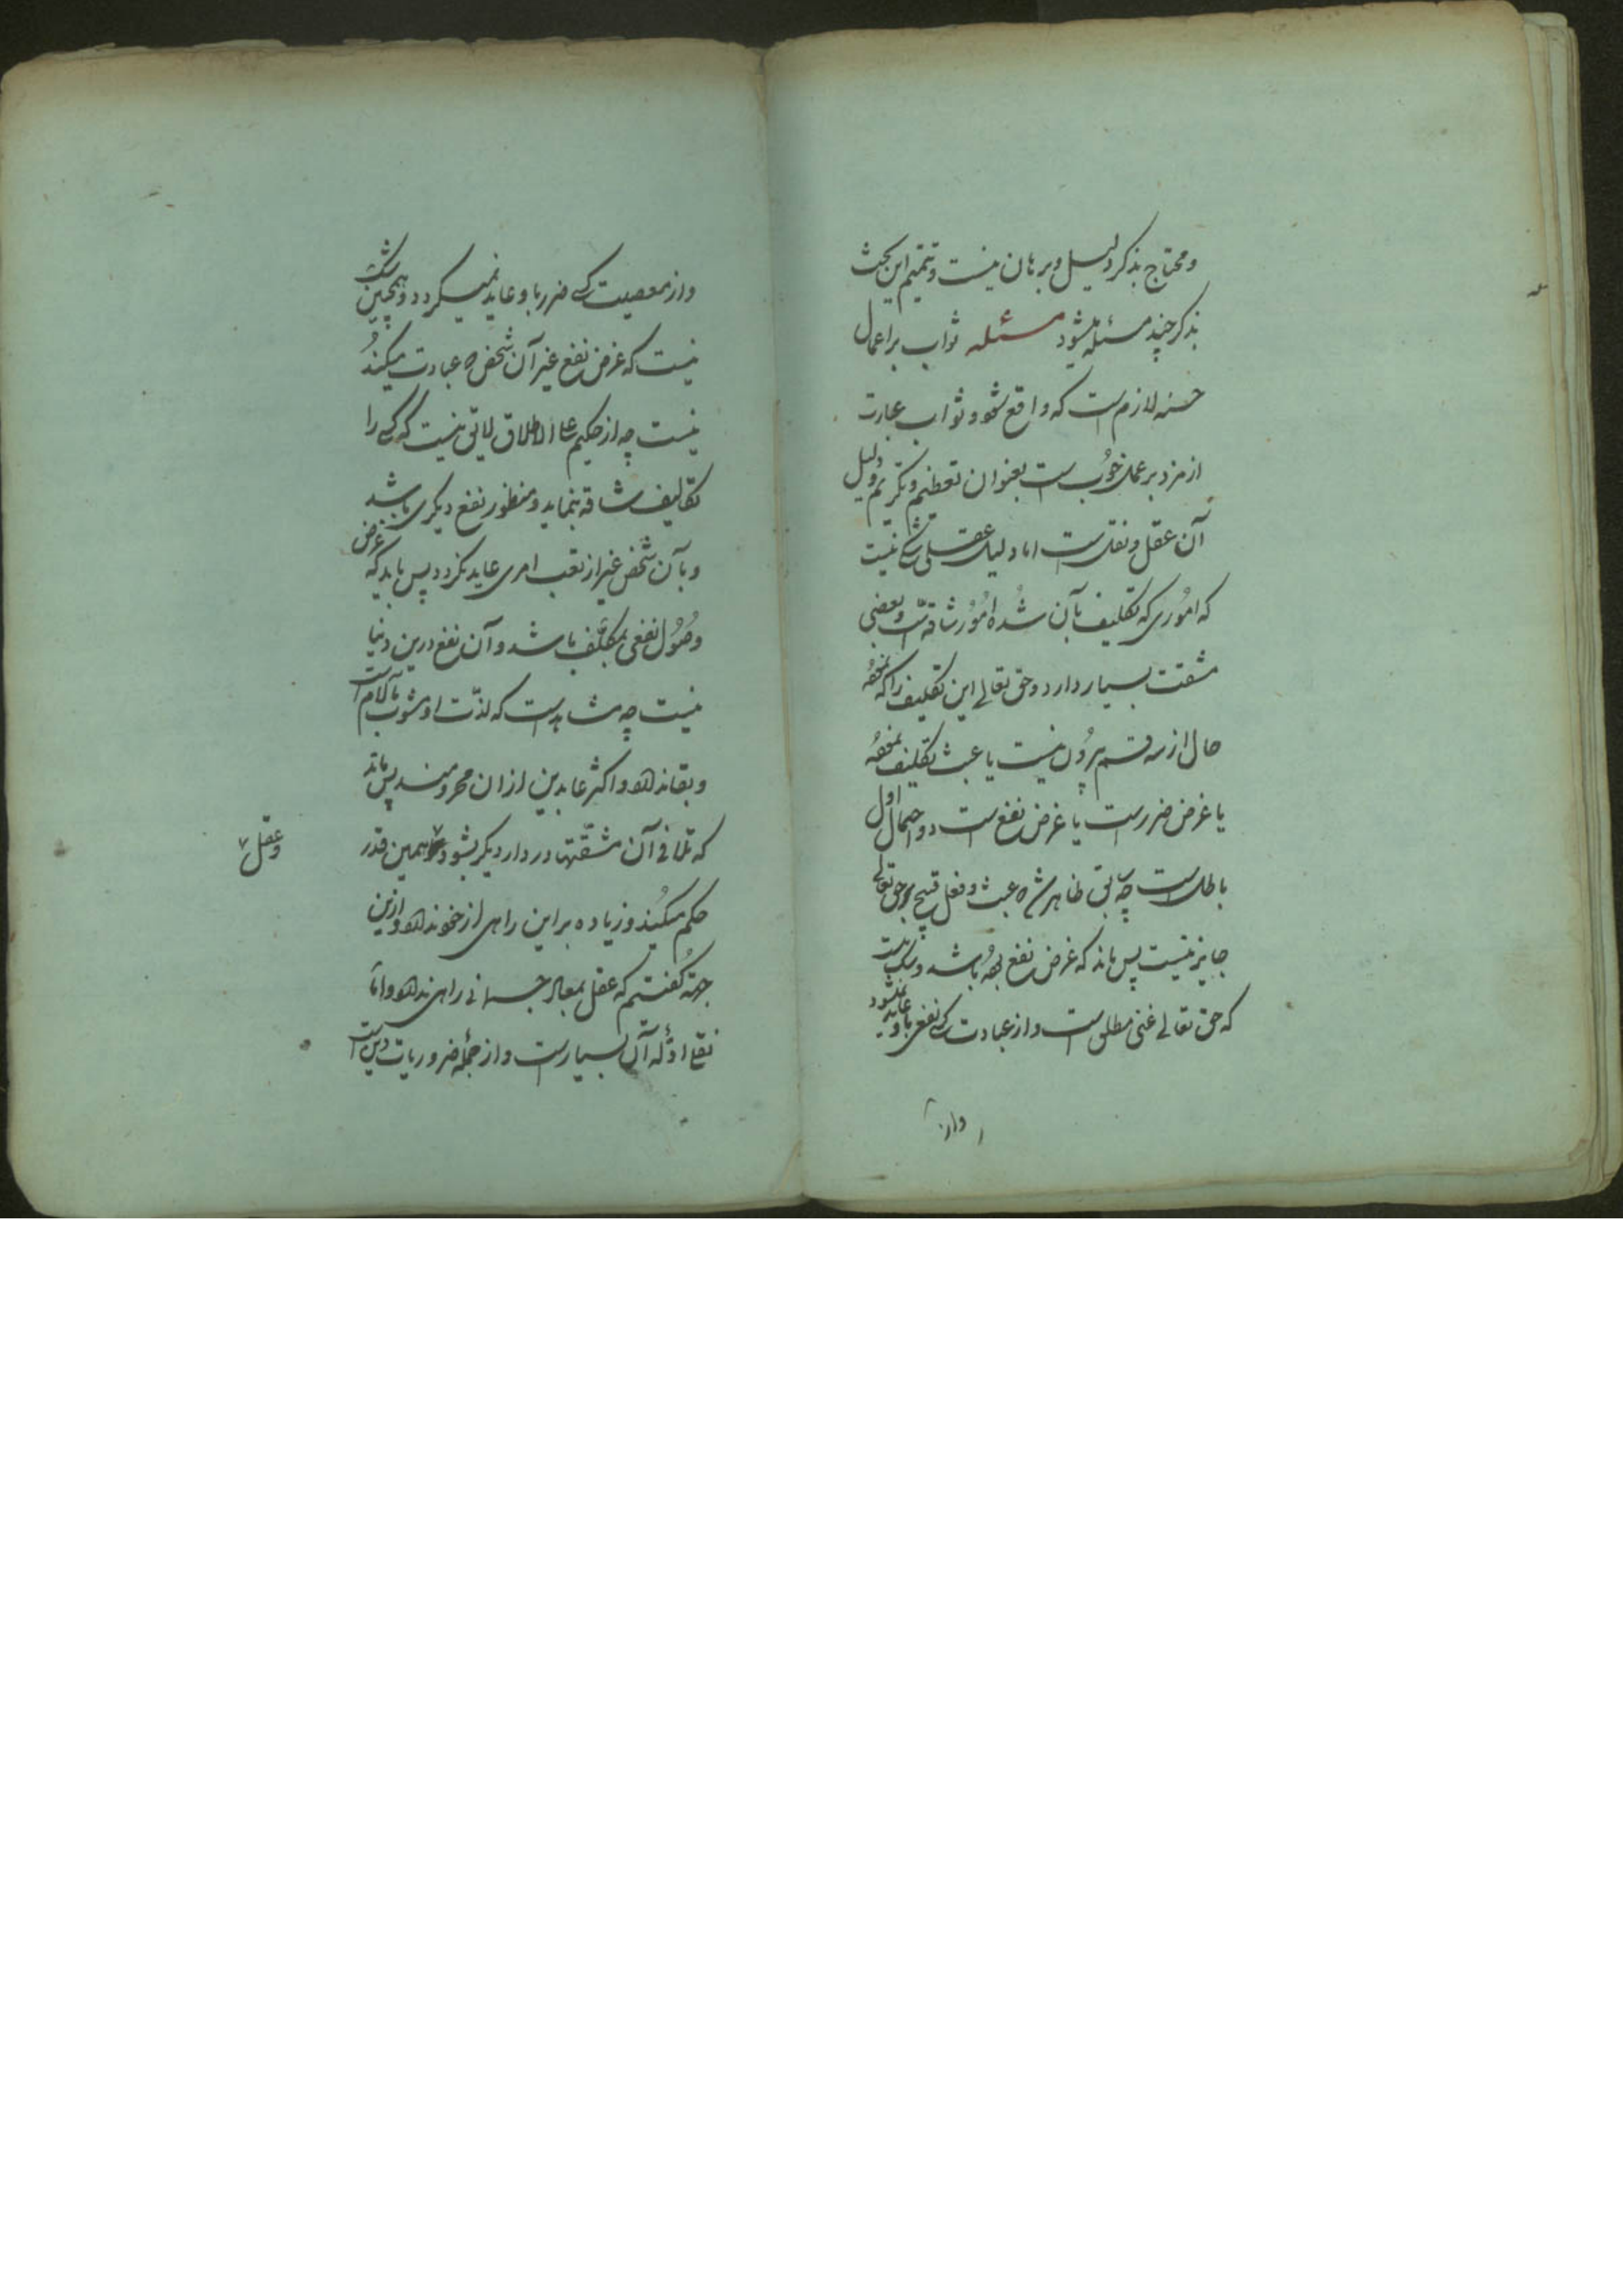 و محتاج بذکر دلیل و برهان نیست و تتمیم این بحث
بذکر چند مسئله میشود مسئله ثواب بر اعمال
حسنه لازمست که واقع شود و ثواب عبارت
از مزد بر عمل خوبست بعنوان تعظیم و تکریم و دلیل
آن عقل و نقلست اما دلیل عقلی شکی نیست
که اموری که تکلیف بآن شده امور شاقه است و بعضی
مشقت بسیار دارد و حق تعالی این تکلیف را که
حال از سه قسم بیرون نیست یا عبث تکلیف
یا غرض ضررست یا غرض نفع است دو احتمال اول
باطلست چه سابق ظاهر شد که عبث و فعل قبیح بر حق تعالی
جایز نیست پس ماند که غرض نفع بوده باشد و شک نیست
که حق تعالی غنی مطلقست و از عبادت کسی نفعی باو عاید نمیشود
و از
و از معصیت کسی ضرر باو عاید نمیگردد و همچنین شک
نیست که غرض نفع غیر آن شخص که عبادت میکند
نیست چه از حکیم علی الاطلاق لایق نیست که کسی را
تکالیف شاقه بنماید و منظور نفع دیگری باشد
و بآن شخص غیر از تعب امری عاید نگردد پس باید که غرض
وصول نفعی بمکلف باشد و آن نفع درین دنیا
نیست چه مشاهد است که لذت او مشوب بآلام است
و بقا ندارد و اکثر عابدین از ان محرومند پس ماند
که تلافی آن مشقتها در دار دیگر بشود همین قدر
و عقل
حکم میکند و زیاده بر این راهی از خود ندارد و ازین
جهة گفتم که عقل بمعاد جسمانی راهی ندارد و اما
نقلی ادله آن بسیارست و از جمله ضروریات دین است